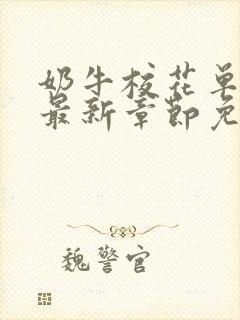 奶牛校花单
最新章节免
魏警官